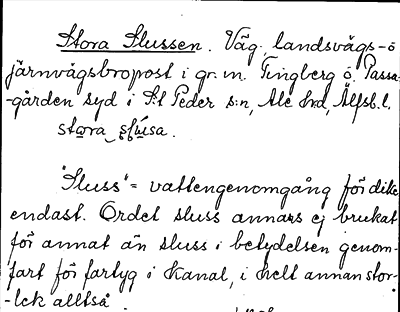 Stora Slussen. Väg, landsvägs- o
järnvägsbropost i gr. m. Tingberg o. Passa-
-gården syd i S:t Peder s:n, Ale hd, Älfsb. l.
stora slusa.
"Sluss" = vattengenomgång för dike
endast. Ordet sluss annars ej brukat
för annat än sluss i betydelsen genom-
fart för fartyg i kanal, i helt annan stor-
-lek alltså